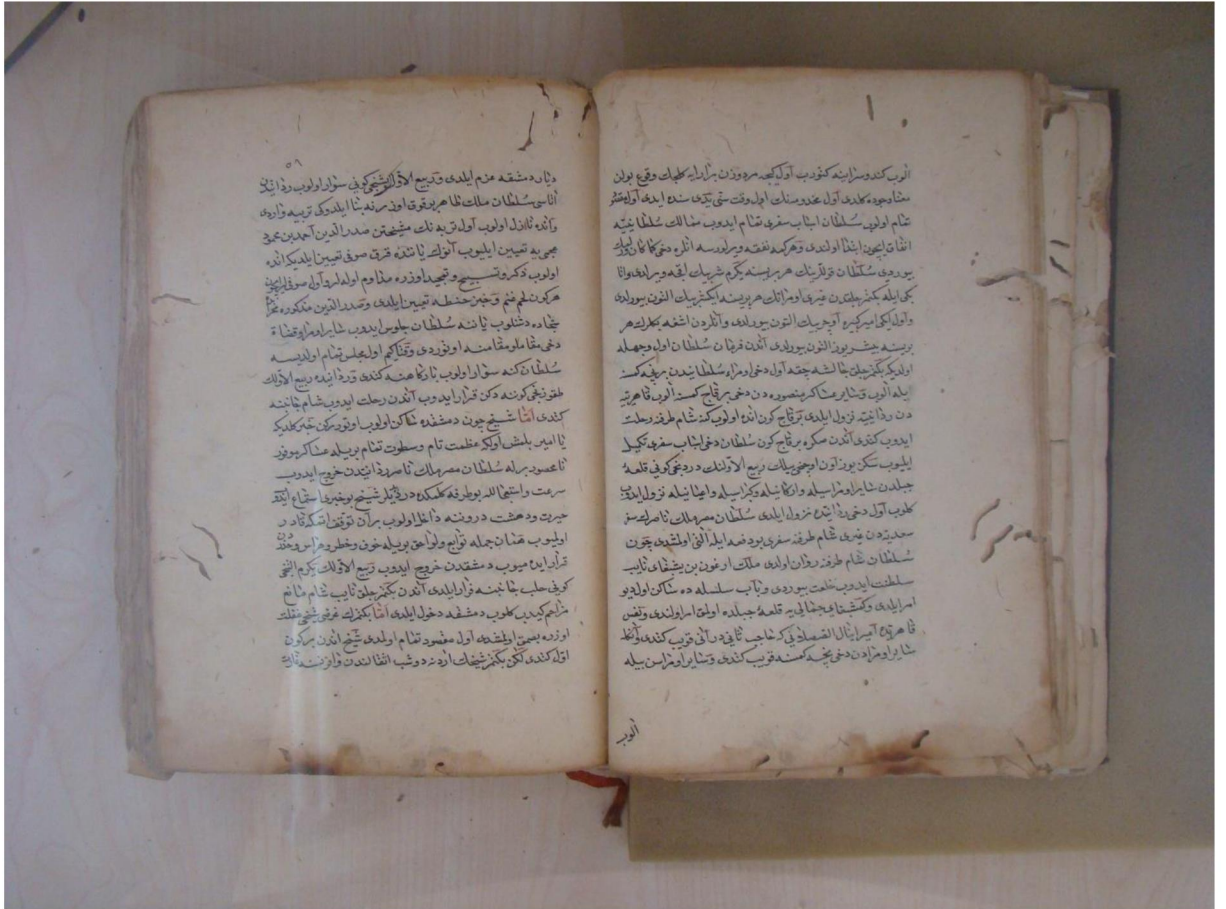 آلوب كندو سراينه كتوردى اول كيجه مرد وزن برابر ايله كلجك وقوع بولن
كلدى اول مخدومنك اول وقت سنى يدى سنده ايدى
تمام اولوب سلطان اسباب سفرى تمام ايدوب ممالك سلطانيه
اتفاق ايچون ابتدا اولندى وهر كمه نفقه ويريلورسه انلره دخى كاكان
بيوردى سلطان هر بريسنه يكرم شر بيك اقچه ويرلدى
بكى ايله بكتمر جلقدن غيرى اومرانك هر بريسنه ايكيشر بيك التون بيورلدى
واول ايكى امير كبيره اوچر بيك التون بيورلدى وانلردن اشغه بكلرك هر
بريسنه بيشر يوز التون بيورلدى آندن قرمان سلطان اول وجهله
اولديكه بكتمر جلق جاليشه چقه اول دخى اومراء سلطانيدن بر نيچه كمسنه
ايله آلوب وساير عساكر منصوره دن دخى بر قاچ كمسنه آلوب قاهريه
دن ريدانيه نزول ايلدى بر قاچ كون انده اولوب كنه شام طرفنه رحلت
ايدوب كتدى آندن صكره بر قاچ كون سلطان دخى اسباب سفرى تكميل
ايليوب سكز يوز اون اوچنجى ييلك ربيع الاولنك دردنجى كونى قلعهٔ
جبلدن ساير اومراسيله واركانيله وكبراسيله واعيانيله نزول ايدوب
كلوب اول دخى ريدانيه ده نزول ايلدى سلطان مصر ملك ناصرك سفر
سعديه دن غيرى شام طرفنه سفرى بو دفعه ايله آلتى اولمشدى چون
سلطان شام طرفنه روان اولدى ملك ارغون بن يشبغاى نايب
سلطنت ايدوب خلعت بيوردى وباب سلسله ده ساكن اوله ديو
امر ايلدى وكمشبغاى جمالى يه قلعهٔ جبلده اولمق امر اولندى ونفس
قاهريه ده امير اينال الصصلانى كه حاجب ثانى در آنى قويب كتدى
ساير اومرادن دخى نيچه كمسنه قويب كتدى وساير اومراسن بيله
آلوب
٥٦
ديار دمشقه عزم ايلدى وربيع الاولك كونى سوار اولوب ريدانيه
اتاسى سلطان ملك ظاهر برقوق اوزرنه بنا ايلدوكى تربيه واردى
وانده نازل اولوب اول تربه نك مشيختن صدر الدين احمد بن محمود
عجمى يه تعيين ايليوب آنوك ياننده قرق صوفى تعيين ايلديكه انده
اولوب ذكر وتسبيح وتمجيد اوزره مداوم اوله لر واول صوفيلر ايچون
هر كون لحم غنم وخبز حنطه تعيين ايلدى وصدر الدين مذكوره
سجاده دشنلوب ياننه سلطان جلوس ايدوب ساير اومرا وقضاة
دخى مقاملو مقامنه اوتوردى وقتاكم اول مجلس تمام اولديسه
سلطان كنه سوار اولوب باركاهنه كندى وريدانيه ده ربيع الاولك
طقوزنجى كوننه دكن قرار ايدوب آندن رحلت ايدوب شام جانبنه
كتدى اما شيخ چون دمشقده ساكن اولوب اوتوررken خبر كلديكه
يا امير بلمش اول كه عظمت تام وسطوت تمام بريله عساكر موفور
نامحصور برله سلطان مصر ملك ناصر ريدانيه دن خروج ايدوب
سرعت واستعجال له بو طرفه كلمكده در ديديلر شيخ بو خبرى استماع ايدوب
حيرت ودهشت درونه داخل اولوب برآن توقف اتمكه قادر
اولميوب همان جمله توابع ولواحق بريله خوف وخطر وهراس وحذر
قرار ايده ميوب دمشقدن خروج ايدوب ربيع الاولك يكرم النجى
كونى حلب جانبنه فرار ايلدى آندن بكتمر جلق نايب شام مانع
مزاحم كيديب كلوب دمشقه دخول ايلدى اما بكتمرك غرضى شيخى غفلت
اوزره بصمق اولمشدى اول مقصود تمام اولمدى شيخ اندن بر كون
اول كتدى لكن بكتمر شيخك اردنه دوشب اتفالندن واغرغنه